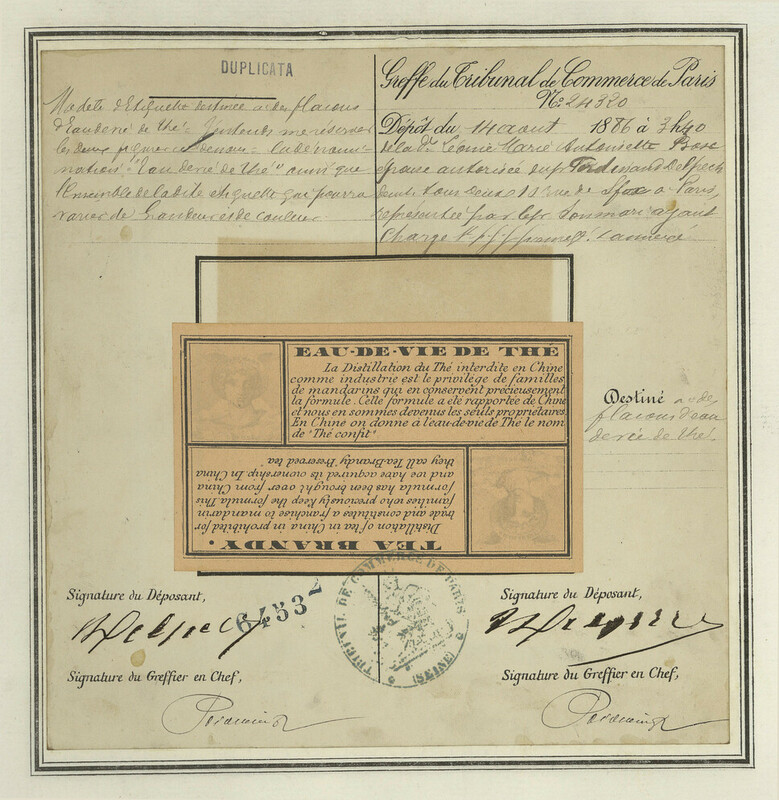 DUPLICATA
Modèle d'Etiquette destinée à des flacons
d'Eau de vie de thé.
les deux
"Eau de vie de thé" ainsi que
l'Ensemble de la dite etiquette qui pourra
varier de et de couleur.
Greffe du Tribunal de Commerce de Paris
No 24320
Dépôt du 14 aout 1886 à 3h40
de la De Léonie Marie Antoinette
épouse autorisée du Sr Ferdinand Delpech
demt tous deux rue de à Paris,
représentée par le Sr ayant
charge
EAU-DE-VIE DE THÉ
La Distillation du Thé interdite en Chine
comme industrie est le privilege de familles
de mandarins qui en conservent précieusement
la formule. Cette formule a été rapportée de Chine
et nous en sommes devenus les seuls propriétaires.
En Chine on donne a l'eau-de-vie de Thé le nom
de "Thé confit"
TEA BRANDY.
Distillation of tea in China in prohibited for
trade and constitutes a franchise to mandarin
families who preciously keep the formula. This
formula has been brought over from China
and we have acquired its ownership. In China
they call Tea-Brandy Preserved tea
Destiné à des
flacons d'eau
de vie de thé.
Signature du Déposant,
64532
Signature du Greffier en Chef,
TRIBUNAL DE COMMERCE DE PARIS
(SEINE)
Signature du Déposant,
Signature du Greffier en Chef,